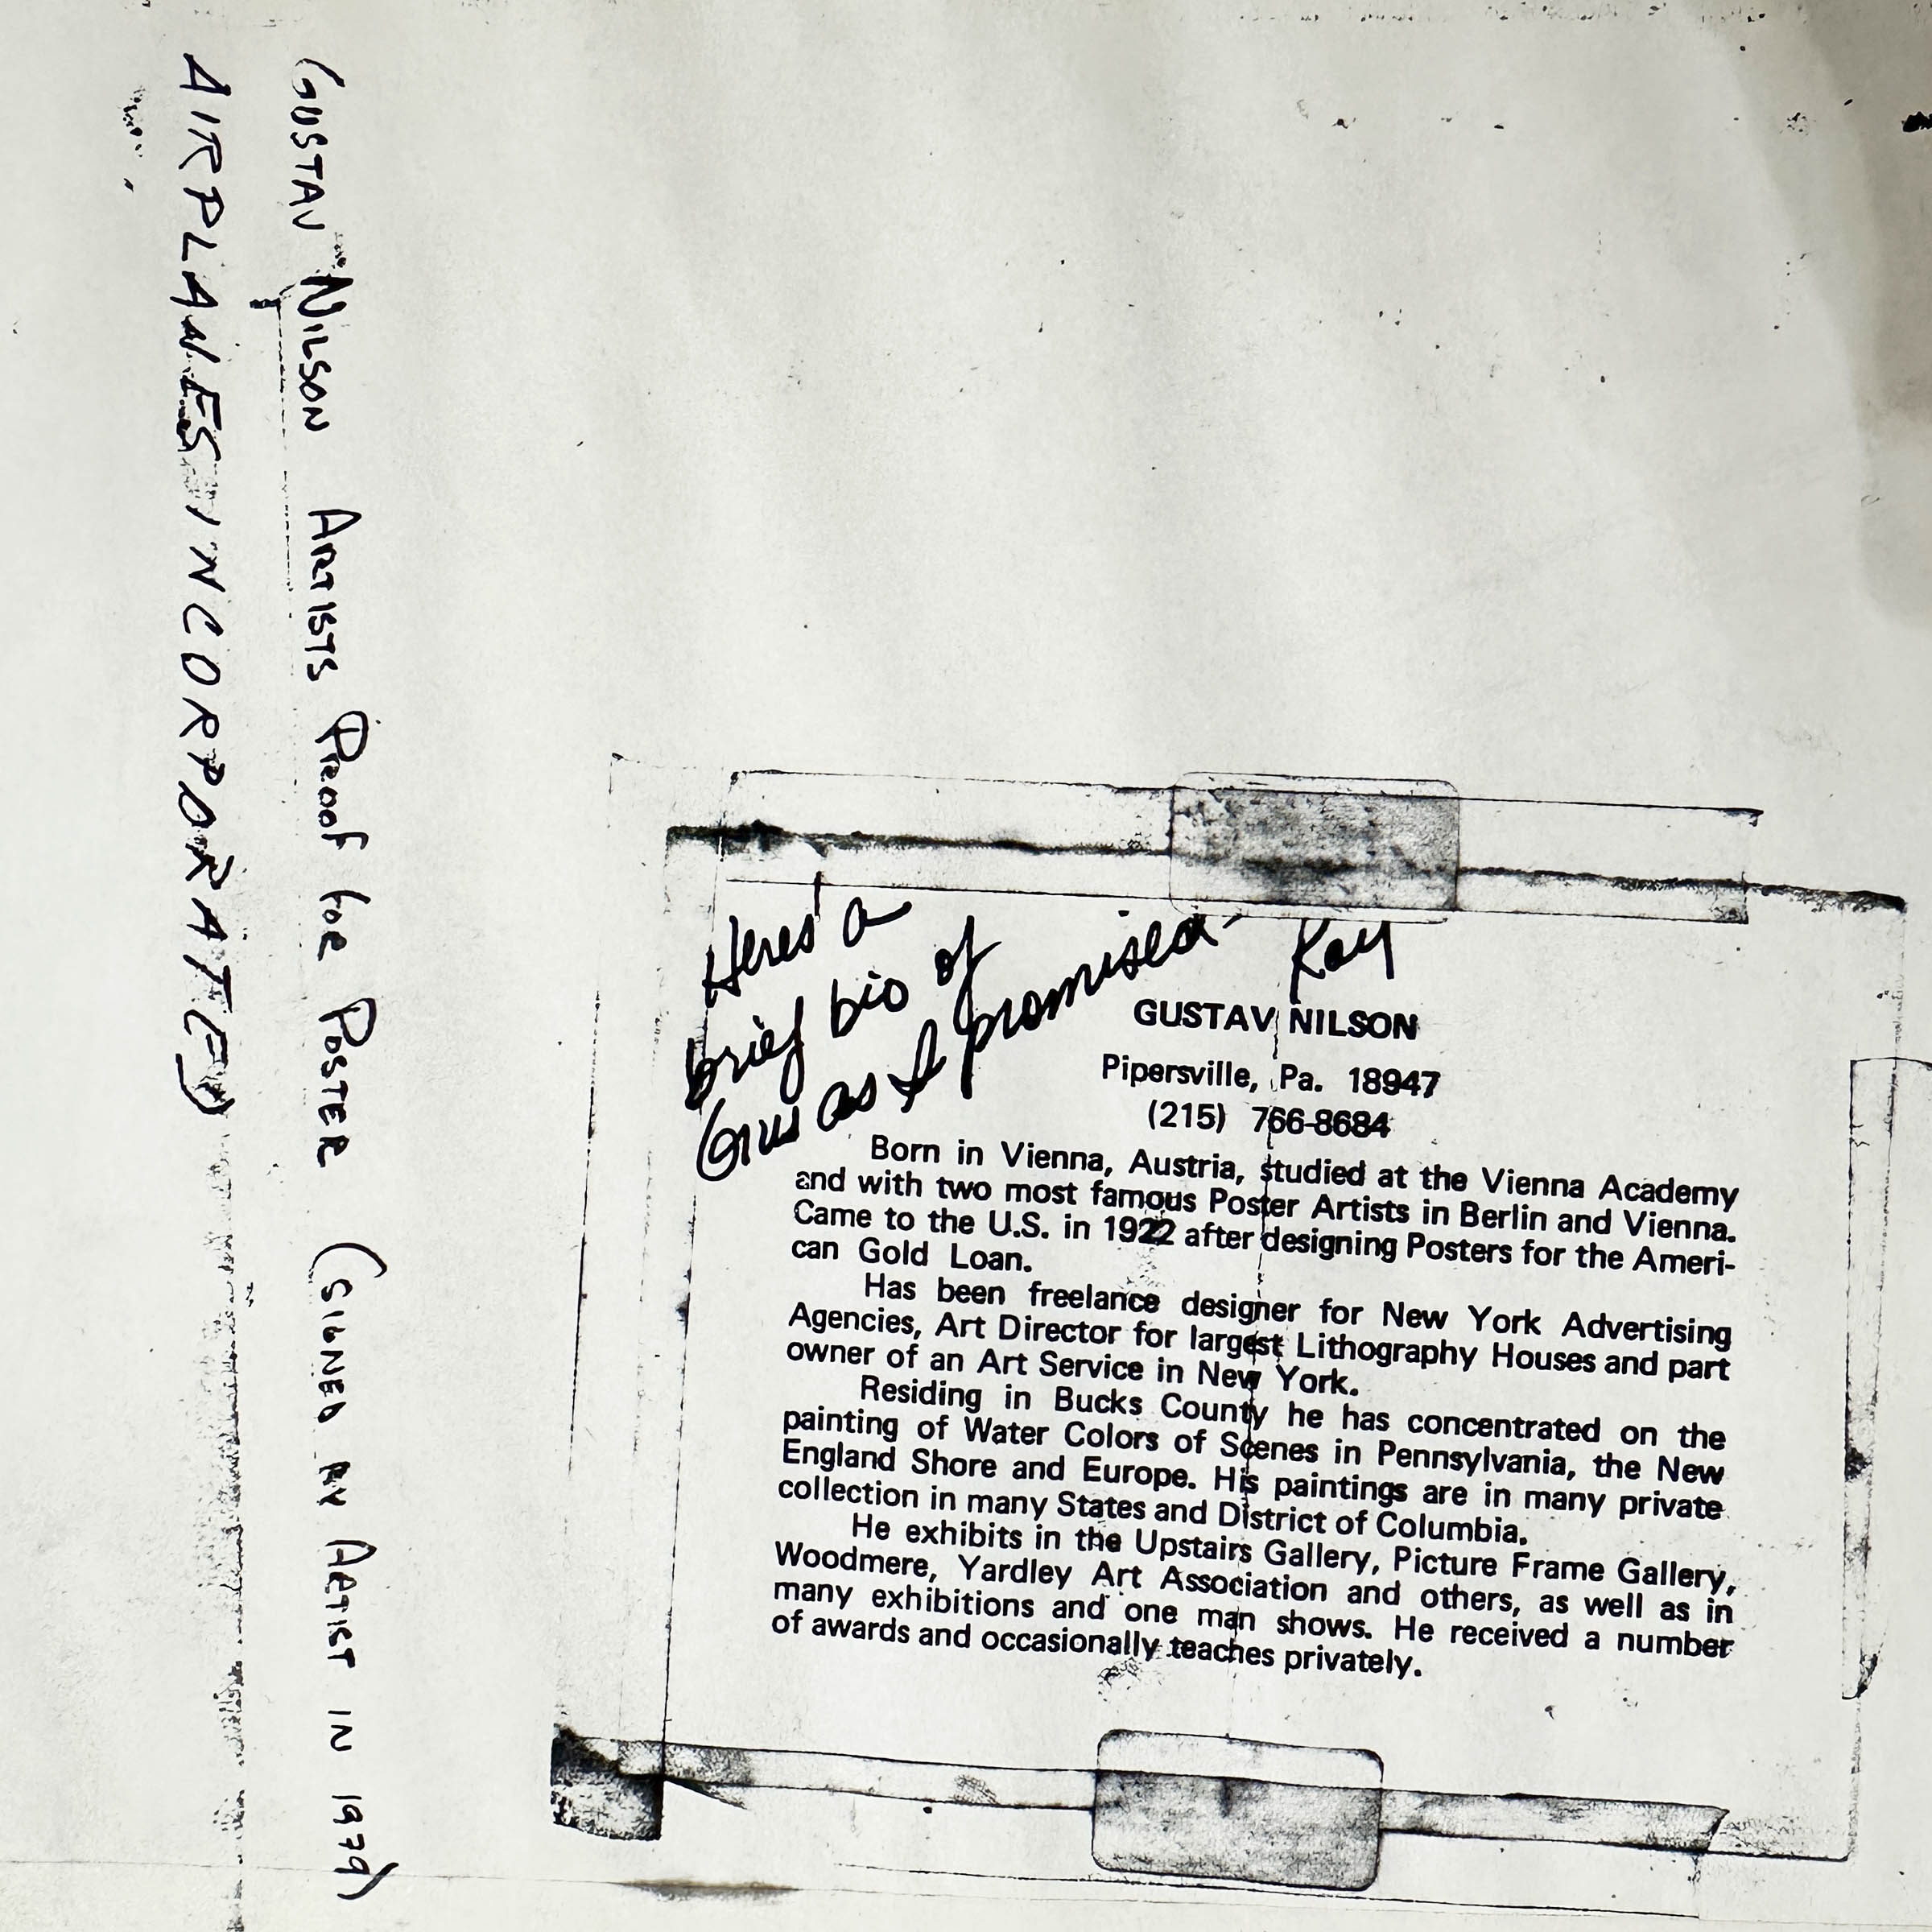 GUSTAV NILSON ARTISTS PROOF FOR POSTER (SIGNED BY ARTIST IN 1979)
AIRPLANES INCORPORATE)
Heres' a
brief bio of
Gus as I promised- Kay
GUSTAV NILSON
Pipersville, Pa. 18947
(215) 766-8684
Born in Vienna, Austria, studied at the Vienna Academy
and with two most famous Poster Artists in Berlin and Vienna.
Came to the U.S. in 1922 after designing Posters for the Ameri-
can Gold Loan.
Has been freelance designer for New York Advertising
Agencies, Art Director for largest Lithography Houses and part
owner of an Art Service in New York.
Residing in Bucks County he has concentrated on the
painting of Water Colors of Scenes in Pennsylvania, the New
England Shore and Europe. His paintings are in many private
collection in many States and District of Columbia.
He exhibits in the Upstairs Gallery, Picture Frame Gallery,
Woodmere, Yardley Art Association and others, as well as in
many exhibitions and one man shows. He received a number
of awards and occasionally teaches privately.